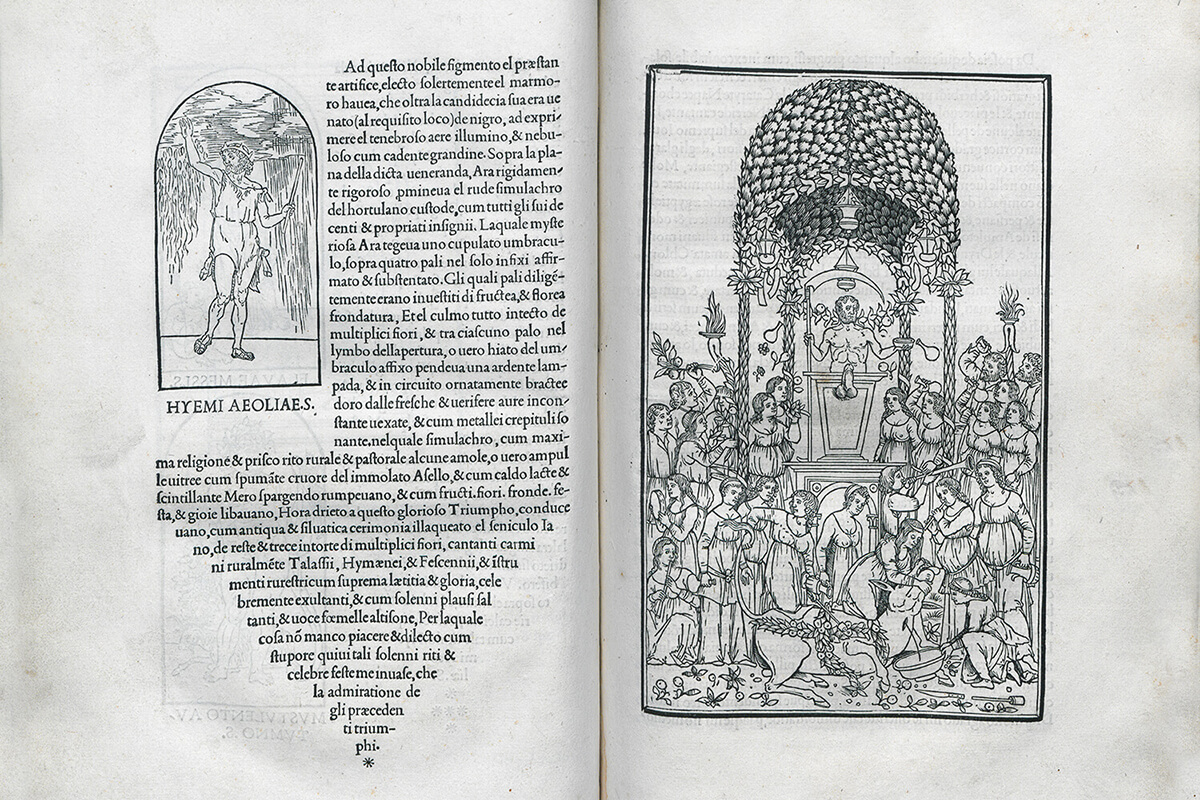 Ad questo nobile figmento el præstan
te artifice, electo solertemente el marmo-
ro hauea, che oltra la candidecia sua era ue
nato (al requisito loco) de nigro, ad expri-
mere el tenebroso aere illumino, & nebu-
loso cum cadente grandine. Sopra la pla-
na della dicta ueneranda, Ara rigidamen-
te rigoroso ꝓmineua el rude simulachro
del hortulano custode, cum tutti gli sui de
centi & propriati insignii. Laquale myste
riosa Ara tegeua uno cupulato umbracu-
lo, sopra quatro pali nel solo infixi affir-
mato & substentato. Gli quali pali diligē-
temente erano inuestiti di fructea, & florea
frondatura, Et el culmo tutto intecto de
multiplici fiori, & tra ciascuno palo nel
lymbo dellapertura, o uero hiato del um-
braculo affixo pendeua una ardente lam-
pada, & in circuito ornatamente bractee
doro dalle fresche & uerifere aure incon-
stante uexate, & cum metallei crepituli so
nante. nelquale simulachro, cum maxi-
ma religione & prisco rito rurale & pastorale alcune amole, o uero ampul
le uitree cum spumāte cruore del immolato Asello, & cum caldo lacte &
scintillante Mero spargendo rumpeuano, & cum fructi. fiori. fronde. fe-
sta, & gioie libauano, Hora drieto a questo glorioso Triumpho, conduce
uano, cum antiqua & siluatica cerimonia illaqueato el seniculo Ia
no, de reste & trece intorte di multiplici fiori, cantanti carmi
ni ruralmēte Talassii, Hymænei, & Fescennii, & īstru
menti rurestri cum suprema lætitia & gloria, cele
bremente exultanti, & cum solenni plausi sal
tanti, & uoce fœmelle altisone, Per laquale
cosa nō manco piacere & dilecto cum
stupore quiui tali solenni riti &
celebre feste me inuase, che
la admiratione de
gli præceden
ti trium-
phi.
*
HYEMI AEOLIAE.S.